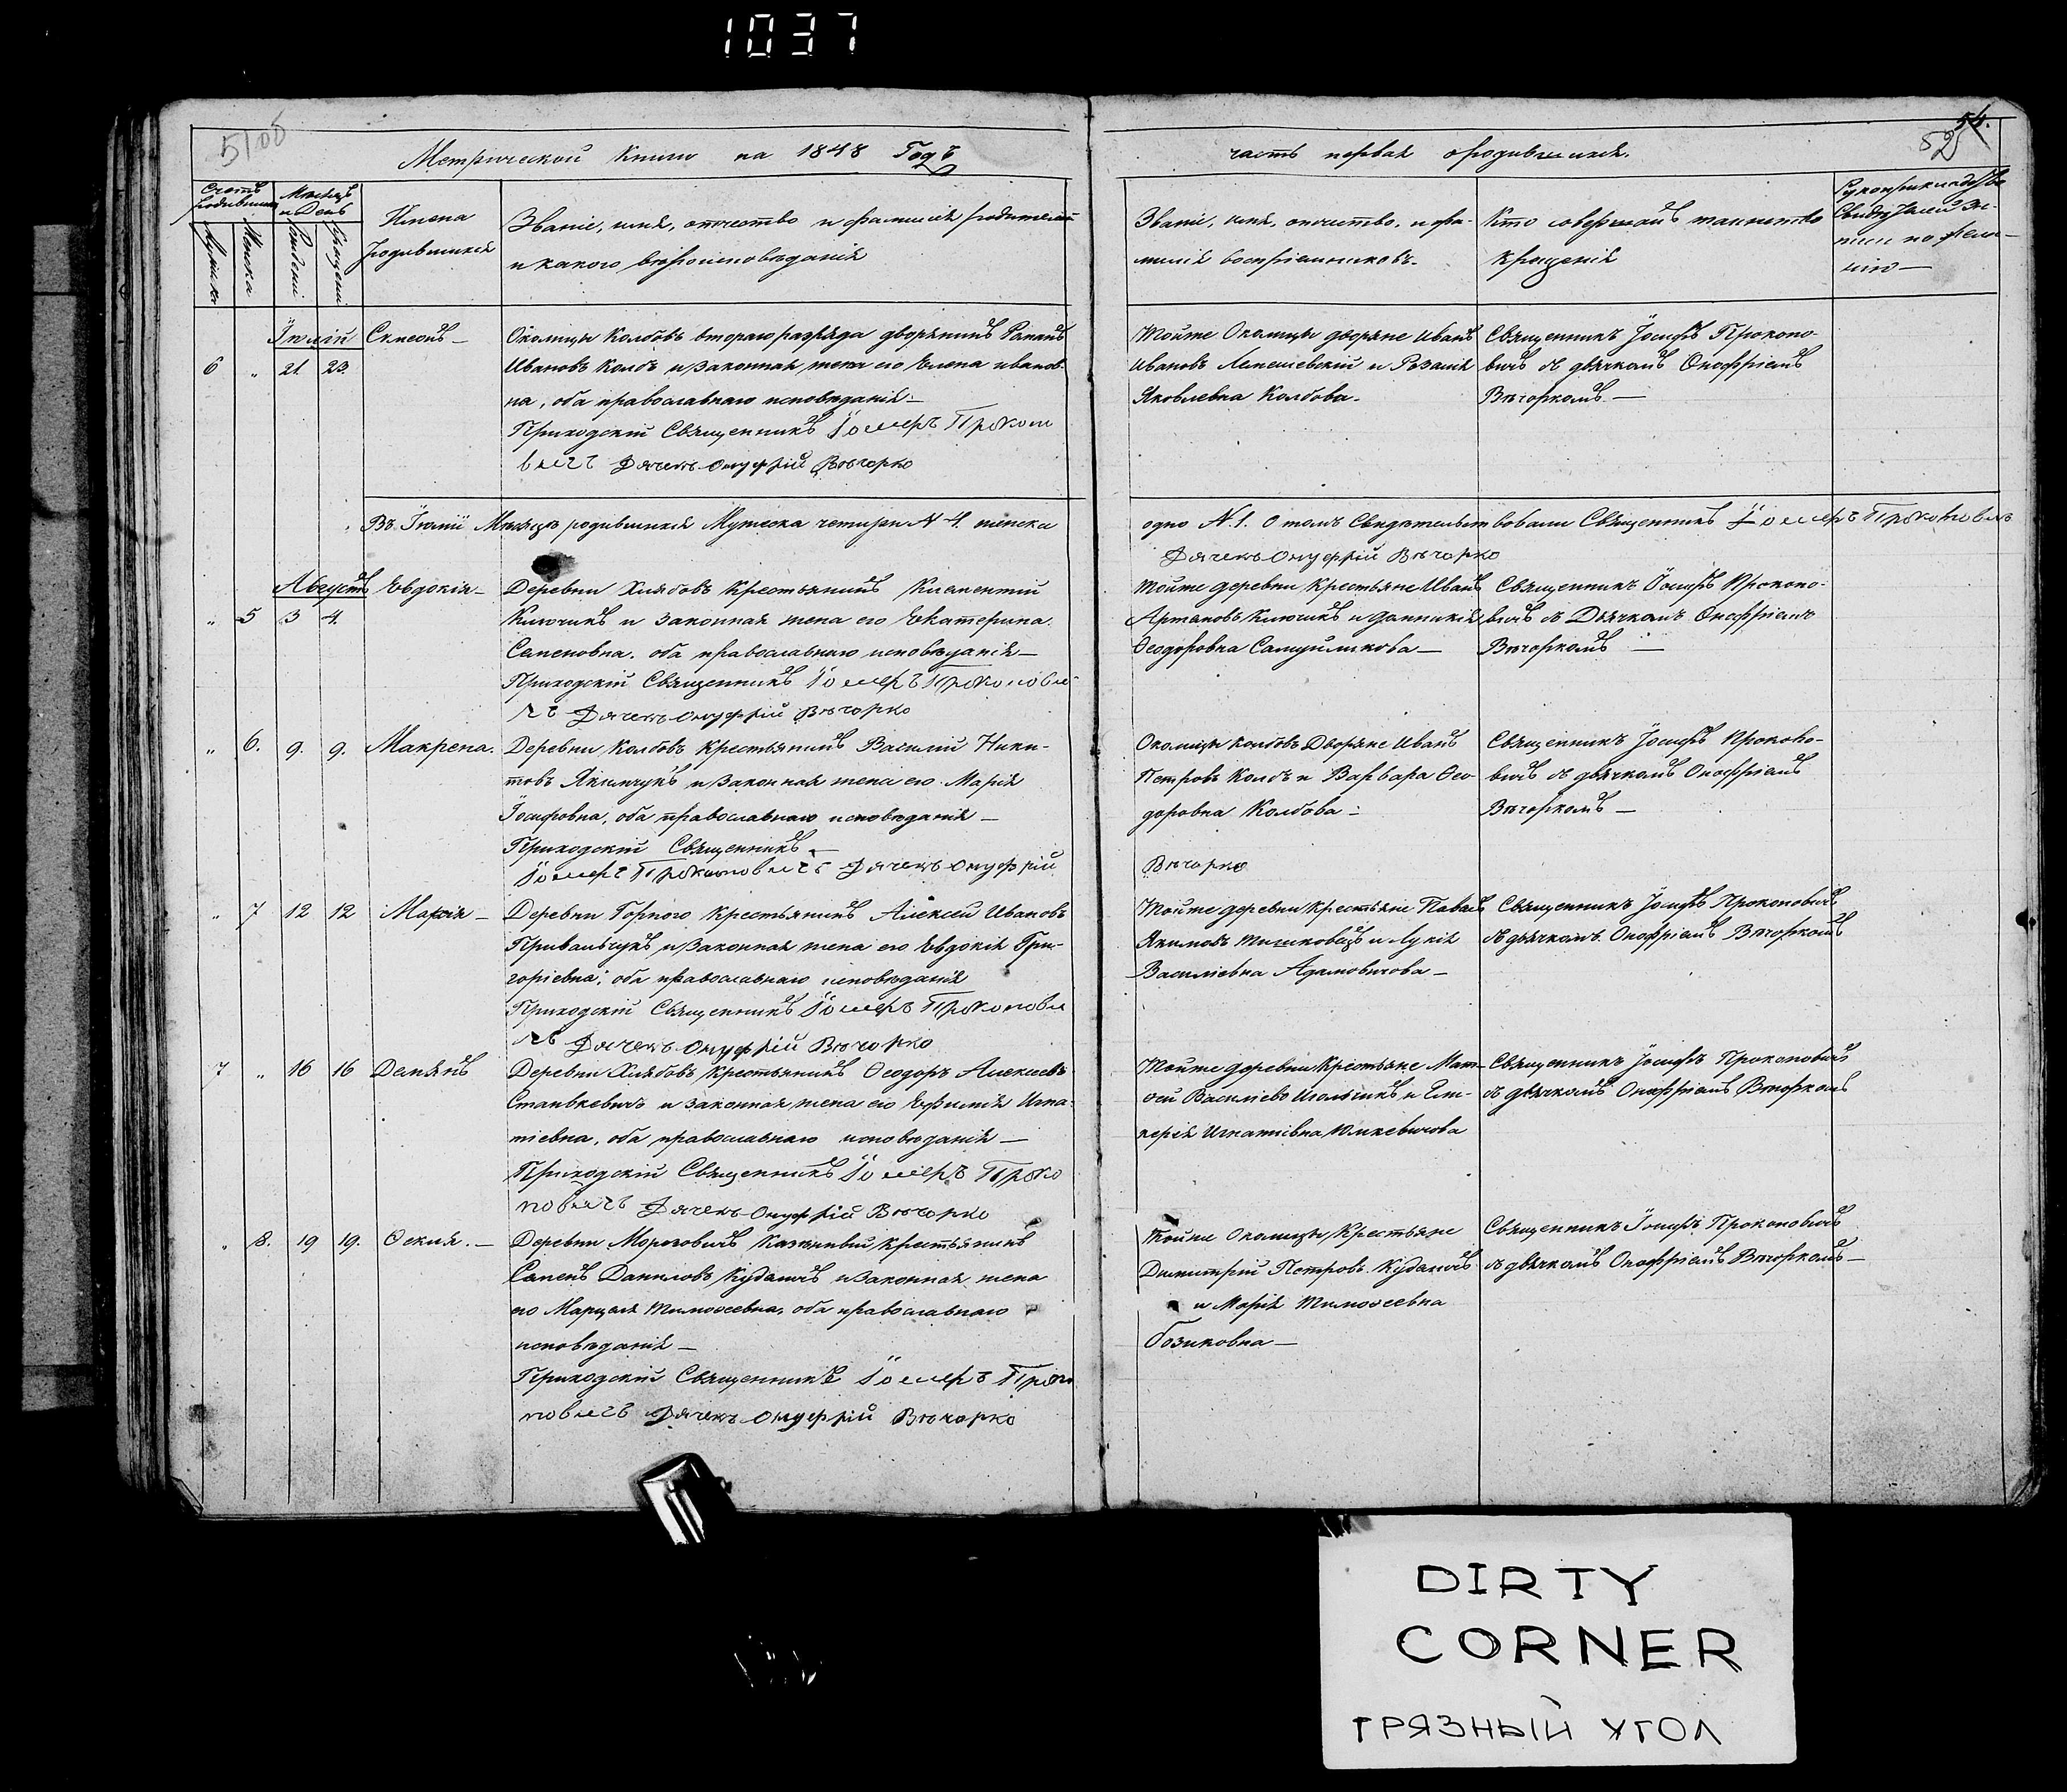 1037
5100
54.
52
Метрической Книги на 1848 Годъ
часть первая о родившихся.
Счетъ родившихся
Мѣсяцъ и День
Имена
родившихся
Званіе, имя, отчество и фамилія родителей
и какого вѣроисповѣданія
Званіе, имя, отчество, и фа-
милія воспріемниковъ.
Кто совершалъ таинство
крещенія
Мужеска
Женска
Рожденія
Крещенія
Іюлій
6 „ 21. 23.
Симеонъ —
Околицы Колбовъ втораго разряда дворянинъ Романъ
Ивановъ Колбъ и законная жена его Елена иванов-
на, оба православнаго исповѣданія —
Приходскій Священникъ Іосифъ Прокопо
вичъ Дячекъ Онуфрій Вѣчорко
Тойже Околицы дворяне Иванъ
Ивановъ Лемешевскій и Розалія
Яковлевна Колбова.
Священникъ Іосифъ Прокопо-
вичъ съ дьячкомъ Онофріемъ
Вѣчоркомъ —
Въ Іюлѣ Мѣсяцѣ родившихся Мужеска четыри N 4. женска
одно N 1. О томъ Свидѣтельствовали Священникъ Іосифъ Прокоповичъ
Дячекъ Онуфрій Вѣчорко
Августъ
„ 5 3 4.
Евдокія —
Деревни Хлябовъ Крестьянинъ Климентій
Ключикъ и законная жена его Екатерина
Семеновна. оба православнаго исповѣданія —
Приходскій Священникъ Іосифъ Прокопови-
чъ Дячекъ Онуфрій Вѣчорко
Тойже деревни Крестьяне Иванъ
Артемовъ Ключикъ и
Ѳеодоровна Самуйликова —
Священникъ Іосифъ Прокопо-
вичъ съ Дьячкомъ Онофріемъ
Вѣчоркомъ —
„ 6. 9. 9.
Макрена.
Деревни Колбовъ Крестьянинъ Василій Ники-
товъ Якимчукъ и законная жена его Марія
Іосифовна, оба православнаго исповѣданія —
Приходскій Священникъ —
Іосифъ Прокоповичъ Дячекъ Онуфрій
Вѣчорко
Околицы Колбовъ Дворяне Иванъ
Петровъ Колбъ и Варвара Ѳео
доровна Колбова :
Священникъ Іосифъ Прокопо-
вичъ съ дьячкомъ Онофріемъ
Вѣчоркомъ —
„ 7 12 12
Марія —
Деревни Горного Крестьянинъ Алексей Ивановъ
Привальчукъ и законная жена его Евдокія Гри-
горіевна; оба православнаго исповѣданія
Приходскій Священникъ Іосифъ Прокопови
чъ Дячекъ Онуфрій Вѣчорко
Тойже деревни Крестьяне Павелъ
Якимовъ и Лукія
Василіевна Адамовичова —
Священникъ Іосифъ Прокоповичъ
съ дьячкомъ Онофріемъ Вѣчоркомъ
7 „ 16 16
Демянъ
Деревни Хлябовъ Крестьянинъ Ѳеодоръ Алексеевъ
Станкевичъ и законная жена его Ефимія Игна-
тіевна, оба православнаго исповѣданія —
Приходскій Священникъ Іосифъ Проко
повичъ Дячекъ Онуфрій Вѣчорко
Тойже деревни Крестьяне Мат-
ѳей Василіевъ и Гли-
керія Игнатіевна
Священникъ Іосифъ Прокоповичъ
съ дьячкомъ Онофріемъ Вѣчоркомъ
„ 8. 19 19.
Ѳекля. —
Деревни Морозовичъ Казенный Крестьянинъ
Семенъ Даниловъ Куданъ и законная жена
его Марцеля Тимоѳеевна, оба православнаго
исповѣданія —
Приходскій Священникъ Іосифъ Проко
повичъ Дячекъ Онуфрій Вѣчорко
Тойже Околицы Крестьяне
Димитрій Петровъ
и Марія Тимоѳеевна
Бозиковна —
Священникъ Іосифъ Прокоповичъ
съ дьячкомъ Онофріемъ Вѣчоркомъ —
DIRTY
CORNER
ГРЯЗНЫЙ УГОЛ